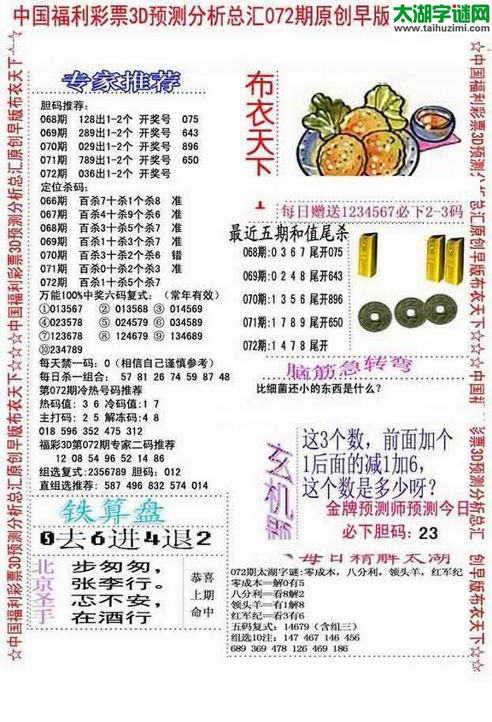 中国福利彩票3D预测分析总汇072期原创早版
太湖字谜网
www.taihuzimi.com
☆中国福利彩票3D预测分析总汇原创早版布衣天下☆☆☆中国福利彩票3D预测分析总汇原创早版布衣天下☆
专家推荐
胆码推荐:
068期 128出1-2个 开奖号 075
069期 289出1-2个 开奖号 643
070期 029出1-2个 开奖号 896
071期 789出1-2个 开奖号 650
072期 036出1-2个 开奖号
定位杀码:
066期 百杀7十杀1个杀8 准
067期 百杀4十杀9个杀5 准
068期 百杀9十杀3个杀7 准
069期 百杀7十杀4个杀5 准
070期 百杀3十杀2个杀6 错
071期 百杀0十杀2个杀3 准
072期 百杀1十杀5个杀7
万能100%中奖六码复式: (常年有效)
①013567 ② 013568 ③ 014569
④023578 ⑤ 024579 ⑥ 034589
⑦123678 ⑧ 124679 ⑨ 134689
⑩234789
每天禁一码: 0 (相信自己谨慎参考)
每日杀一组合: 57 81 26 74 59 87 48
第072期冷热号码推荐
热码值: 3 6 冷码值: 1 7
主打码: 2 5 解冻码: 4 8
018 596 352 475 312
福彩3D第072期专家二码推荐
12 08 54 96 52 14 86
组选复式:2356789 胆码: 012
直组选推荐: 587 496 832 574 014
布衣天下
每日赠送1234567必下2-3码
最近五期和值尾杀
068期:0 3 6 7 尾开075
069期:0 2 4 8 尾开643
070期:1 3 5 6 尾开896
071期:1 7 8 9 尾开650
072期:1 4 7 8 尾开
脑筋急转弯
比细菌还小的东西是什么?
玄机题
这3个数，前面加个
1后面的减1加6，
这个数是多少呀?
金牌预测师预测今日
必下胆码: 23
铁算盘
0去6进4退2
北京圣手
步匆匆，
张李行。
忑不安，
在酒行
恭喜
上期
命中
每日精解太湖
072期太湖字谜:零成本，八分利，领头羊，红军纪
零成本==解0有5
八分利==看8解2
领头羊==有1解8
红军纪==看3有6
五码复式: 14679 (含组三)
组选10注: 147 467 146 456
689 369 478 126 469 186
☆中国福利彩票3D预测分析总汇原创早版布衣天下☆☆☆中国福
彩票3D预测分析总汇原创早版布衣天下☆